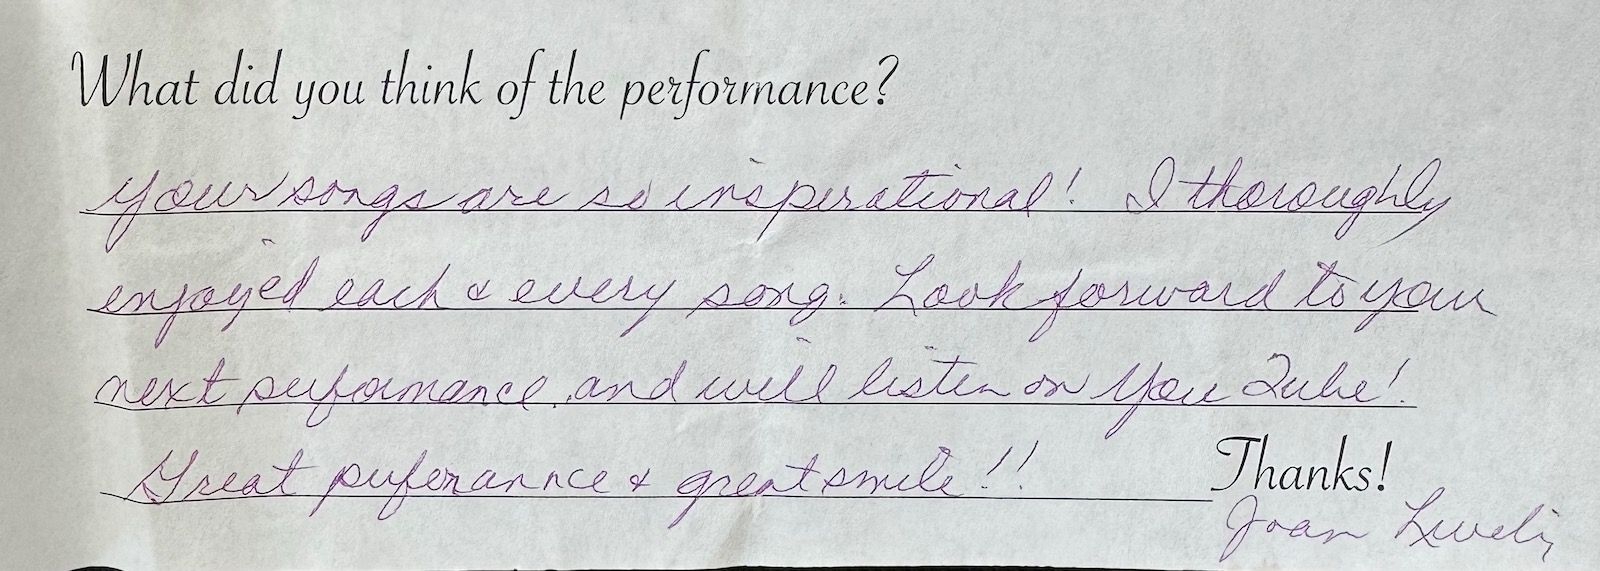 What did you think of the performance?
Your songs are so inspirational! I thoroughly
enjoyed each & every song. Look forward to your
next performance, and will listen on You Tube!
Great peformance & great smile!!
Thanks!
Joan